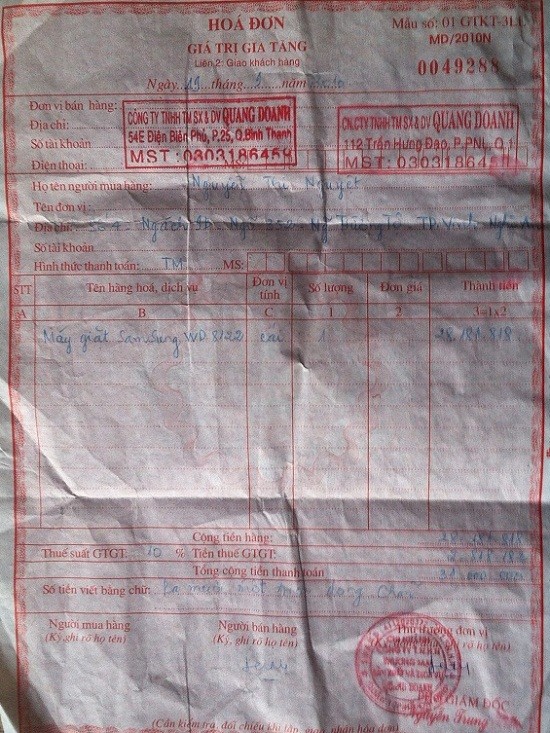 HOÁ ĐƠN
GIÁ TRỊ GIA TĂNG
Liên 2: Giao khách hàng
Mẫu số: 01 GTKT-3LL
MD/2010N
0049288
Ngày 19 tháng 2 năm
Đơn vị bán hàng:
Địa chỉ:
Số tài khoản
Điện thoại:
CÔNG TY TNHH TM SX & DV QUANG DOANH
54E Điện Biên Phủ, P.25, Q.Bình Thạnh
MST: 0303186459
CN.CTY TNHH TM SX & DV QUANG DOANH
112 Trần Hưng Đạo, P.PNL, Q.1
MST: 0303186459
Họ tên người mua hàng: Nguyễn Thị Nguyệt
Tên đơn vị:
Địa chỉ: Ngách Ngõ TP.Vinh Nghệ An
Số tài khoản
Hình thức thanh toán: TM MS:
STT Tên hàng hoá, dịch vụ Đơn vị tính Số lượng Đơn giá Thành tiền
A B C 1 2 3=1x2
Máy giặt SamSung WD 8122 cái 1 28.181.818
Cộng tiền hàng: 28.181.818
Thuế suất GTGT: 10 % Tiền thuế GTGT: 2.818.182
Tổng cộng tiền thanh toán 31.000.000
Số tiền viết bằng chữ: Ba mươi một triệu đồng chẵn
Người mua hàng
(Ký, ghi rõ họ tên)
Người bán hàng
(Ký, ghi rõ họ tên)
Thủ trưởng đơn vị
QUANG DOANH
GIÁM ĐỐC
Nguyễn Trung
(Cần kiểm tra, đối chiếu khi lập, giao, nhận hóa đơn)